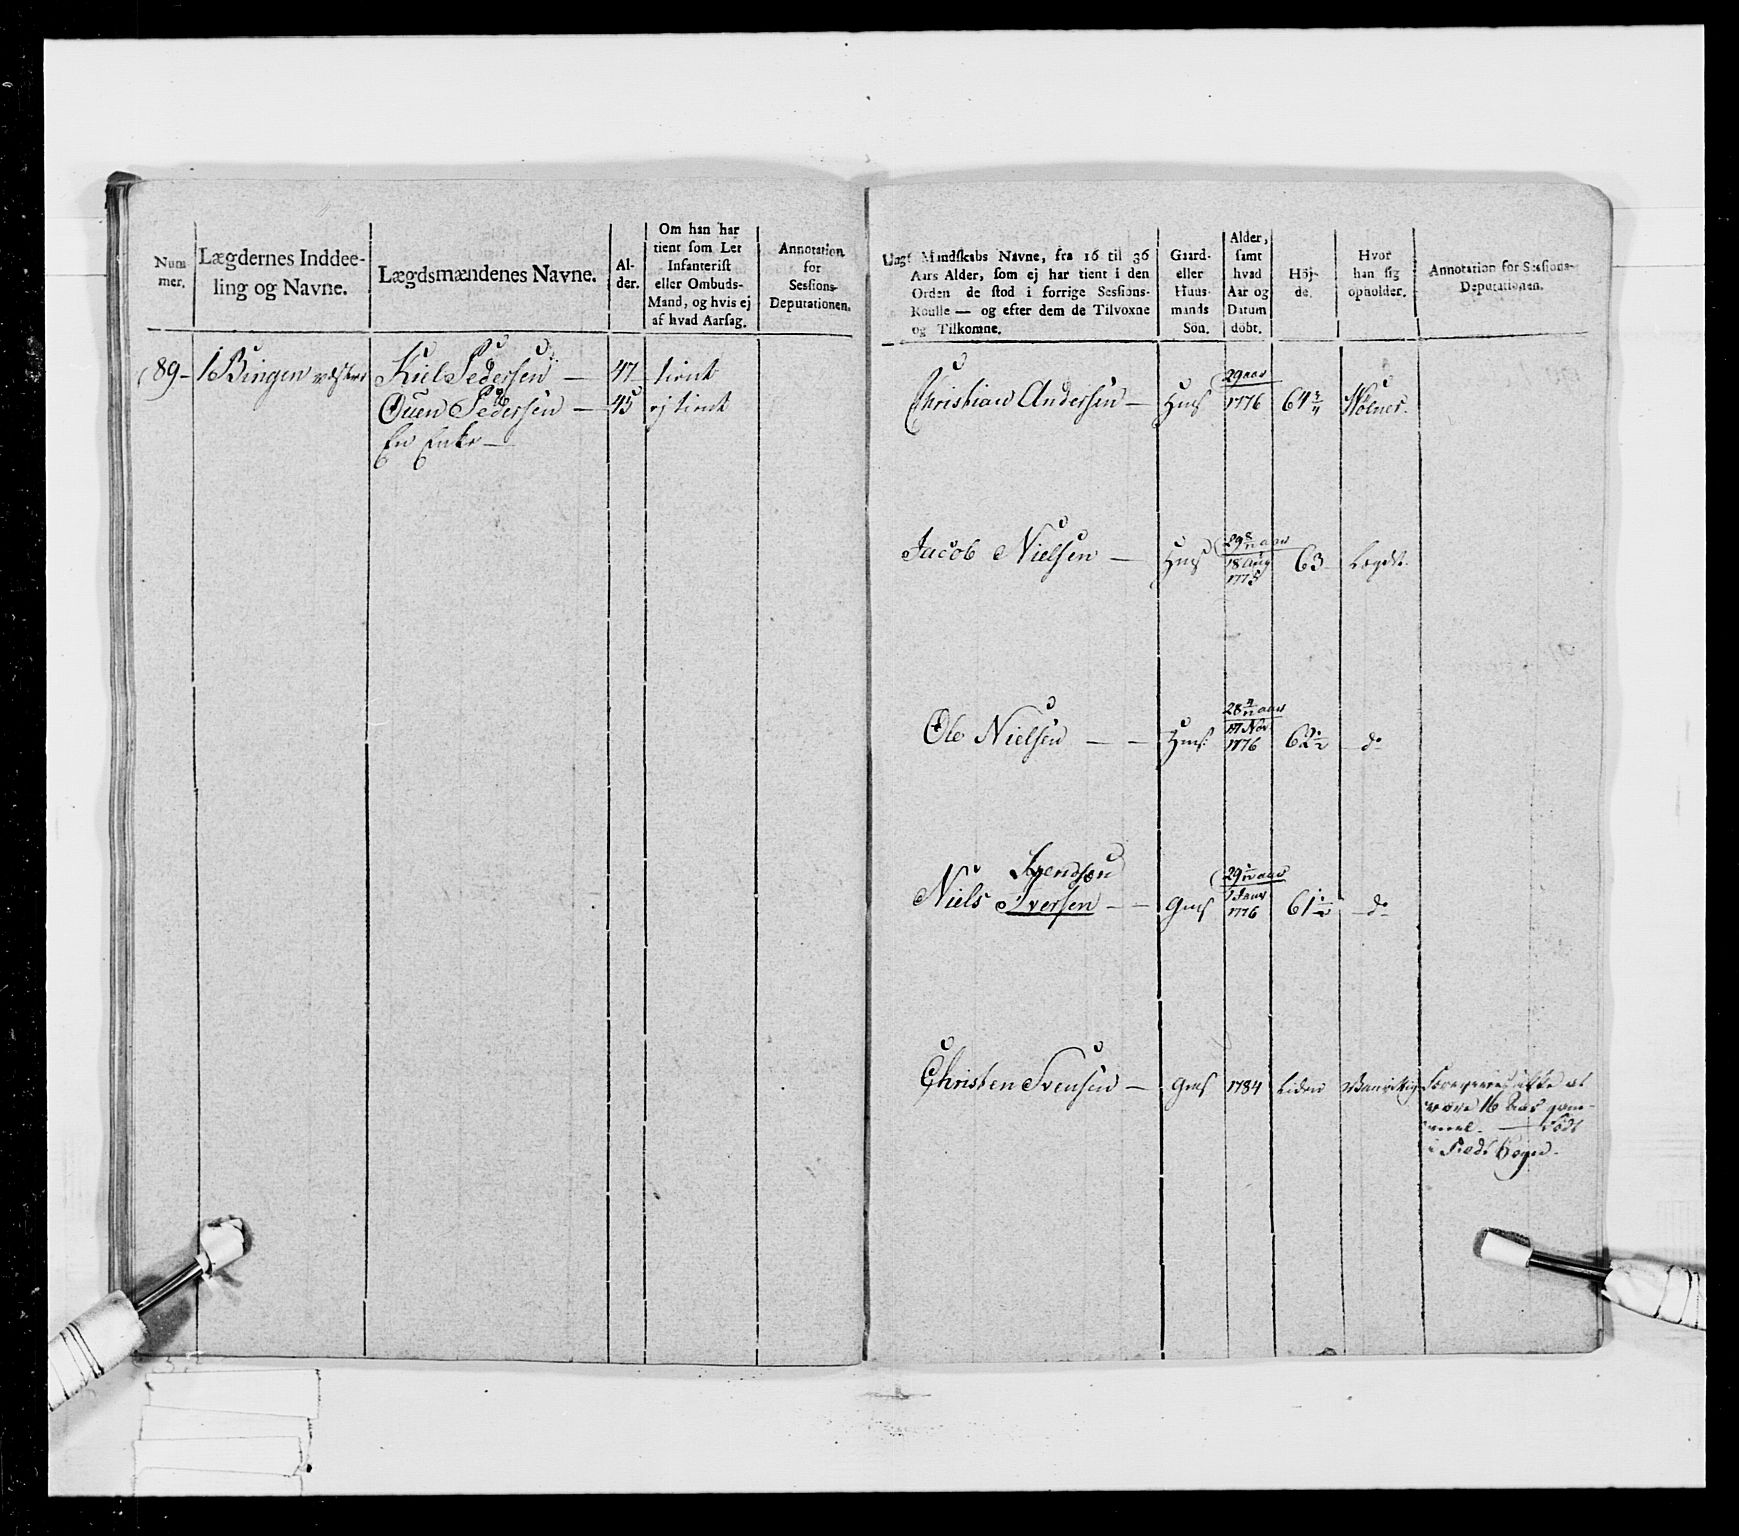 Num
mer.
Lægdernes Inddee-
ling og Navne.
Lægdsmændenes Navne.
Al-
der.
Om han har
tient som Let
Infanterist
eller Ombuds-
Mand, og hvis ej
af hvad Aarsag.
Annotation
for
Sessions-
Deputationen.
89- 1 Bingen
Kiel Pedersen — 47 tient
Ouen Pedersen — 45 ej tient
En Enke —
Mandskabs Navne, fra 16 til 36
Aars Alder, som ej har tient i den
Orden de stod i forrige Sessions-
Roulle — og efter dem de Tilvoxne
og Tilkomne.
Gaard-
eller
Huus-
mands
Sön.
Alder,
samt
hvad
Aar og
Datum
döbt.
Höj-
de.
Hvor
han sig
opholder.
Annotation for Sessions-
Deputationen.
29 aar
Christian Andersen — Hms 1776 64 3/4
Jacob Nielsen — Hms 29 8/12 aar 63 Lægdet.
18 Aug
1775
28 4/12 aar
Ole Nielsen — — Hms: 17 Nov 62 1/2 do
1776
Svendsen
Niels Iversen — — Gms 29 aar 61 1/2 do
1776
Christen Svensen — Gms 1784 Liden
være 16 Aar gam-
mel. — født